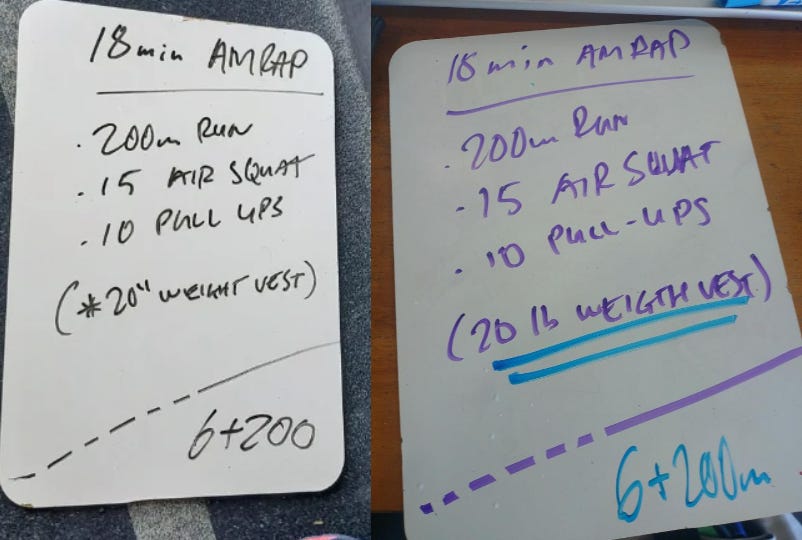 18 min AMRAP
. 200m RUN
. 15 AIR SQUAT
. 10 PULL UPS
(*20" WEIGHT VEST)
6+200
18 min AMRAP
. 200m RUN
. 15 AIR SQUAT
. 10 PULL-UPS
(20 lb WEIGTH VEST)
6+200m